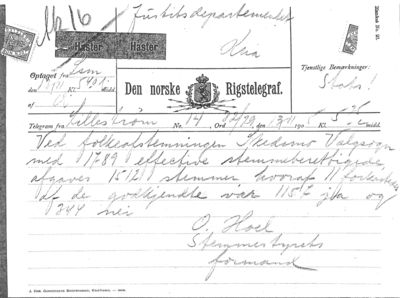 No 16
Justitsdepartementet
Kria
Haster Haster
Optaget fra
Den norske Rigstelegraf.
Tjenstlige Bemærkninger:
Stats!
Telegram fra Lillestrøm No. 14 Ord 24/23, den 13/11 1905 Kl. midd.
Ved folkeafstemningen Skedsmo Valgsogn
med 1789 effective stemmeberettigede
afgaves 1512 stemmer hvoraf 11 forkastedes
af de godkjendte var 1157 ja og
344 nei
O. Hoel
Stemmestyrets
formand